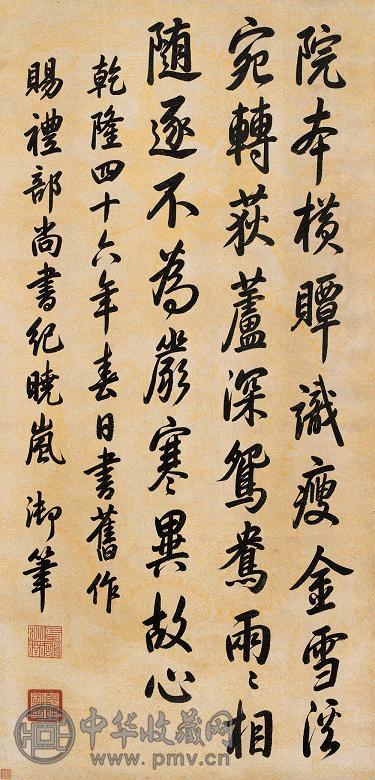 院本橫贉識瘦金雪溪
宛轉荻蘆深鴛鴦兩〻相
随逐不為嚴寒異故心
乾隆四十六年春日書舊作
賜禮部尚書紀曉嵐 御筆
中华收藏网
www.pmv.cn